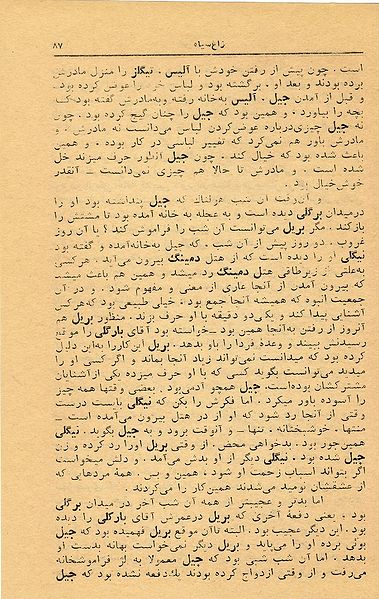 زاغ سیاه ۸۷
است . چون پیش از رفتن خودش با آلیس . نیگلز را منزل مادرش
برده بودند و بعد او . برگشته بود و لباس را عوض کرده بود.
و قبل از آمدن جیل . آلیس بهخانه رفته وبهمادرش گفته بود که
بچه را بیاورد . و همین بود که جیل را چنان گیج کرده بود . چون
نه جیل چیزی‌درباره عوض‌کردن لباس می‌دانست نه مادرش . و
مادرش باور هم نمی‌کرد که تغییر لباسی در کار بوده . و همین
باعث شده بود که خیال کند . چون جیل آنطور حرف میزند خل
شده است . و مادرش تا حالا هم چیزی نمی‌دانست ـ آنقدر
خوش‌خیال بود .
و آن‌وقت آن شب هرلناك که جیل پنداشته بود او را
درمیدان برگلی دیده است و به عجله به خانه آمده بود تا مشتش را
بازکند . مگر بریل می‌توانست آن شب را فراموش کند ؟ با آن روز
غروب . دو روز پیش از آن شب . که جیل به‌خانه‌آمده و گفته بود
نیگلی او را دیده است که از هتل دمینگ بیرون می‌آید . هرکسی
به‌علتی از زیرطاقی هتل دمینگ رد میشد و همین هم باعث میشد
که بیرون آمدن از آنجا عاری از معنی و مفهوم شود . و در آن
جمعیت انبوه که همیشه آنجا جمع بود . خیلی طبیعی بود که‌هرکس
آشنایی پیدا کند و یکی‌دو دقیقه با او حرف بزند. منظور بریل هم
آنروز از رفتن به‌آنجا همین بود ـخواسته بود آقای بارگلی را موقع
رسیدنش ببیند و وعدهٔ فردا را باو بدهد . بریل این‌کاررا به‌این دلیل
کرده بود که میدانست نمی‌تواند زیاد آنجا بماند و اگر کسی او را
میدید می‌توانست بگوید کسی که با او حرف میزده یکی ازآشنایان
مشترکشان بوده‌است. جیل همچو آدمی‌بود . بعضی وقتها همه چیز
را آسوده باور میکرد . اما فکرش را بکن که نیگلی بایست درست
وقتی از آنجا رد شود که او از در هتل بیرون می‌آمده است .
منتها . خوشبختانه . تنها ـ و آنوقت برود و به جیل بگوید . نیگلی
همین‌جور بود . بدخواهی محض . از وقتی بریل اورا رد کرده و زن
جیل شده بود . نیگلی دیگر از او بدش می‌آمد . و دلش میخواست
اگر بتواند اسباب زحمت او شود . همین و بس . همهٔ مردهایی که
از عشقشان نومید می‌شدند همین‌کار را می‌کردند .
اما بدتر و عجیبتر از همه آن شب آخر در میدان برگلی
بود . یعنی دفعهٔ آخری که بریل درعمرش آقای بارکلی را دیده
بود . این دیگر عجیب بود . البته تاآن موقع بریل فهمیده بود که جیل
بوئی برده او را می‌پاید و بریل دیگر نمی‌خواست بهانه بدست او
بدهد . اما آن شب شبی بود که جیل معمولا به لژ فراموشخانه
می‌رفت و از وقتی ازدواج کرده بودند یك‌دفعه نشده بود که جیل